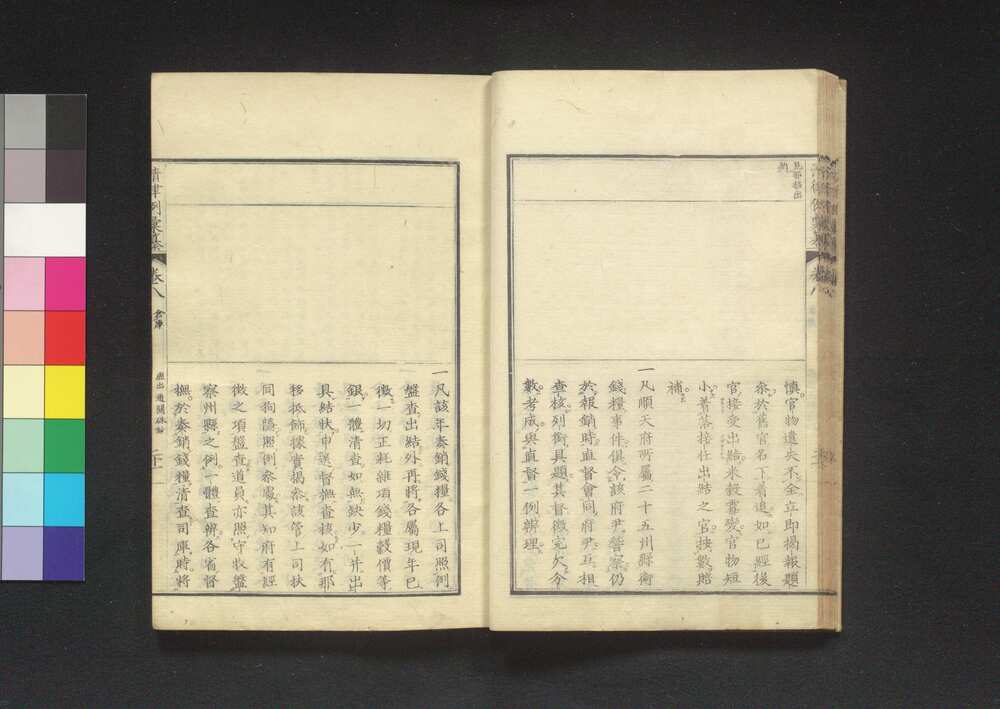 慎官物遺失不全立即揭報題
叅於舊官名下着追如已經後
官接受出結米穀霉變官物短
小着落接任出結之官按數賠
補
一凡順天府所屬二十五州縣衛
錢糧事件俱令該府尹營察仍
於報銷時直督會同府尹互相
查核列銜具題其督徵完欠分
數考成與直督一例辨理
一凡該年奏銷錢糧各上司照例
盤查出結外再將各屬現年已
徵一切正耗雜項錢糧穀價等
銀一體清查如無缺少一并出
具結狀申送督撫查核如有那
移抵飾據實揭叅該管上司扶
同狥隱照例叅處其知府有經
徵之項盤查道員亦照守牧盤
察州縣之例一體查辨各省督
撫於奏銷錢糧清查司庫時將
清律例彙纂
卷八
倉庫